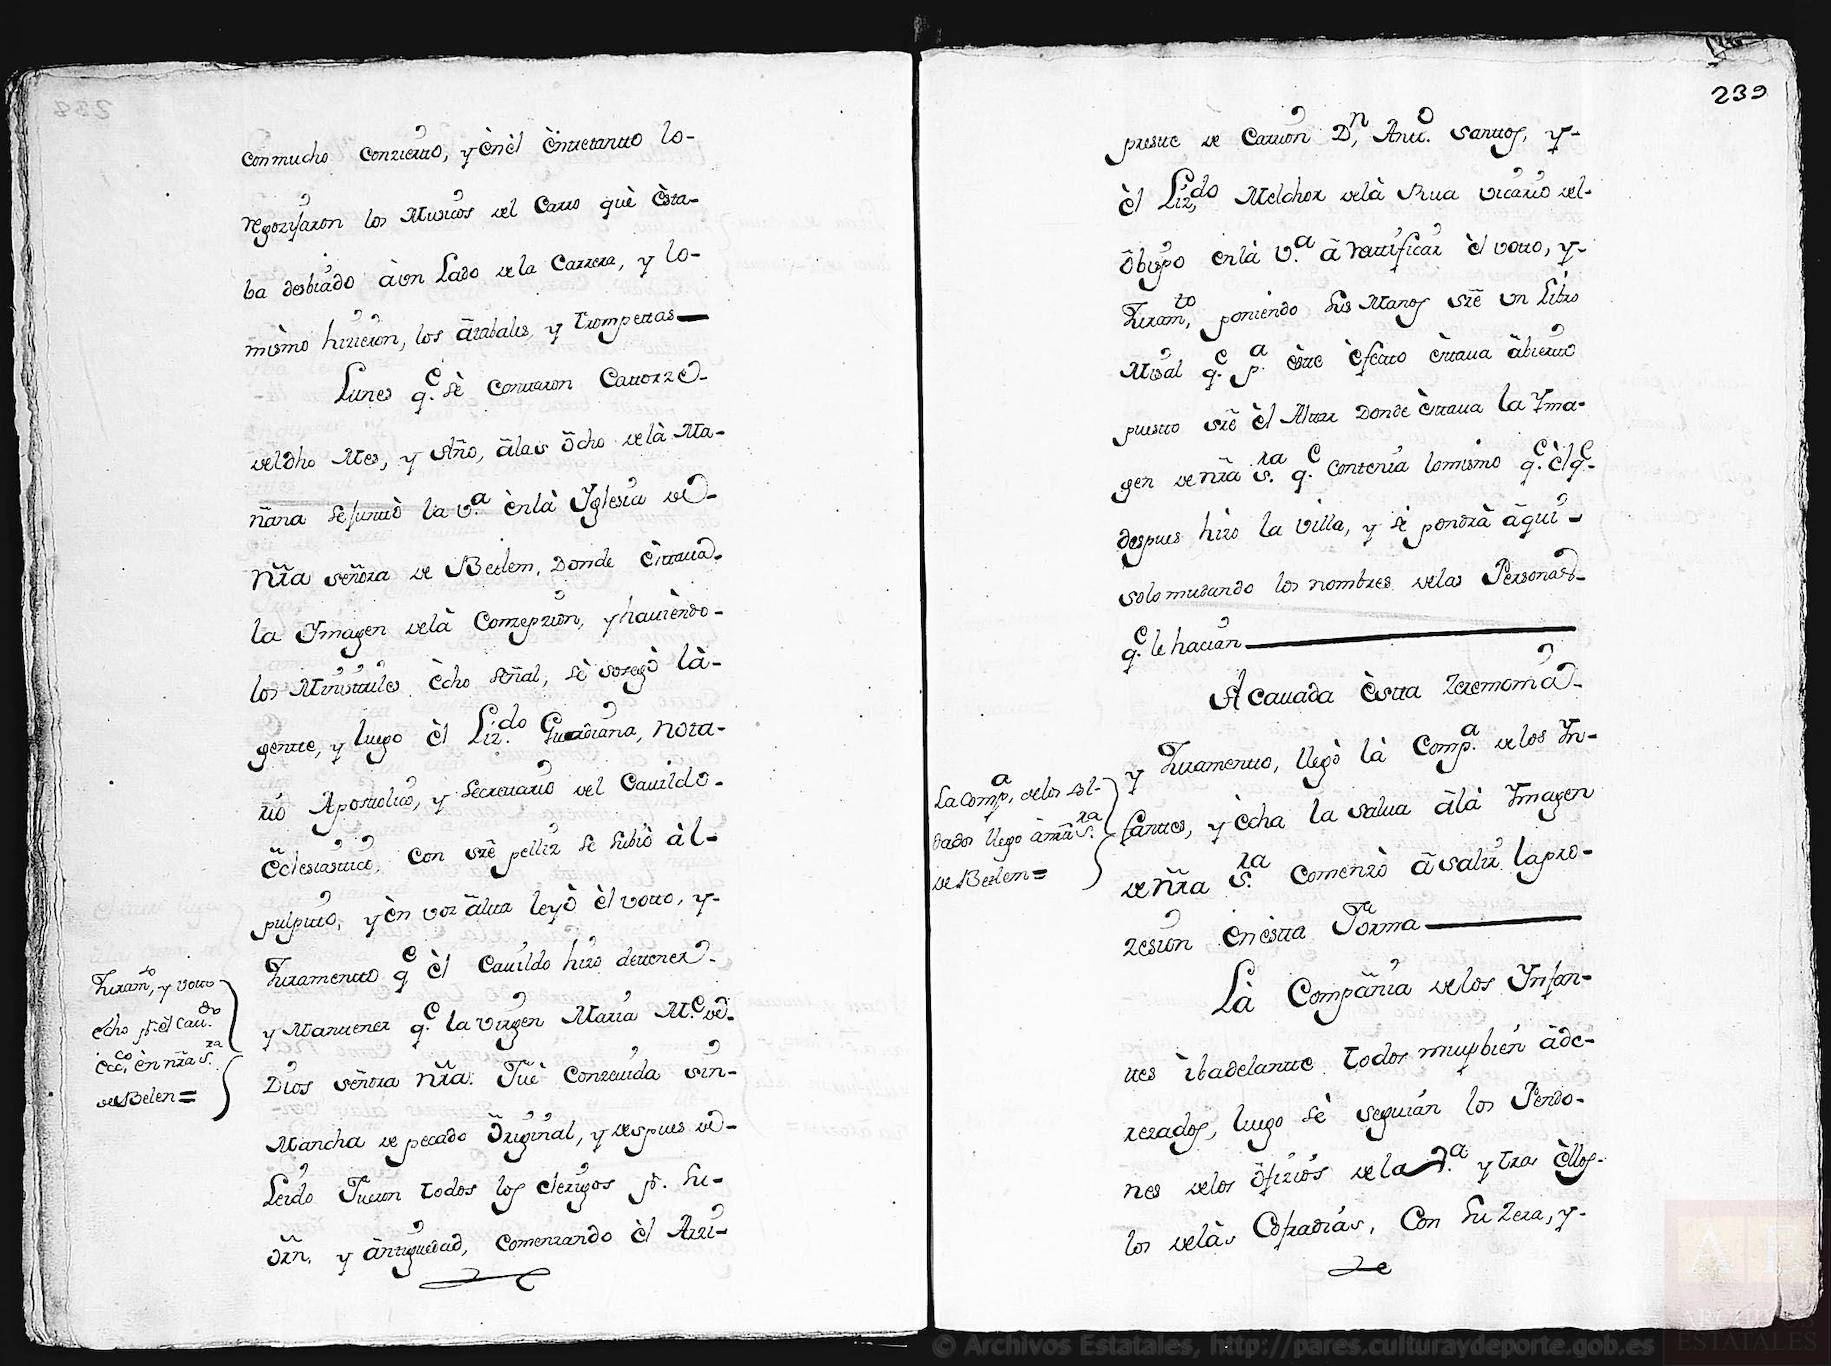 con mucho Conzierto, y èn èl èntretantto lo-
regozijaron los Musicos del Carro què èsta-
ba desbiado à ùn Lado de la Carrera, y lo-
mismo hizieron, los atabales, y trompettas
Lunes q.e sè Conttaron Cattorze-
del dho Mes, y Año, àlas òcho de là Ma-
ñana se junttò la V.a ènlà Yglesia de-
Nr̃a señora de Bettlem, Donde èsttaua-
la Ymagen delà Conzepzion, y hauièndo-
los Ministtriles ècho señal, sè sosegò là-
gentte, y luego èl Liz.do Guardiana, Nota-
rio Apostolico, y Secrettario del Cauildo-
èclesiasttico, Con sr̃e pelliz se subiò àl-
pulpitto, y èn voz àltta leyò èl votto, y-
Juramentto q.e èl Cauildo hizo detener-
y Manttener q.e la Virgen Maria M.e de-
Dios señora nr̃a. Fuè Conzeuida sin-
Mancha de pecado òriginal, y despues de-
Leido Fueron todos los clerigos p.r su-
òrn̄. y ànttiguedad, Comenzando èl Arzi-
Juram.to, y votto
echo p.r èl Cau.do
ècc.co, èn nr̃a S.ra
de Belen =
239
presttе de Carrion D.n Antt.o Santtos, y-
èl Liz.do Melchor delà Rua vicario del-
òbispo enlà V.a à rattificar èl votto, y-
Juram.to, poniendo sus Manos sr̃e un Libro
Misal q.e p.a estte èfectto èsttaua àbiertto
puestto sr̃e èl Alttar Donde èsttaua la Yma-
gen de nr̃a s.ra q.e Contenia lo mismo q.e èl q.e-
despues hizo la Villa, y sè pondrà àqui-
solo mudando los nombres delas Personas-
q.e le hacian
Acauada èstta Zeremonia-
y Juramentto, llegò là Comp.a delos Yn-
fanttes, y ècha la salua àlà Ymagen
de Nr̃a S.ra Comenzò à salir la pro-
zesion en èstta Forma
Là Compañia delos Ynfan-
ttes iba delantte todos muy bien àde-
rezados, luego sè seguian los Pendo-
nes delos òfizios de la V.a y tras èllos-
los delàs Cofradias, Con su Zera, y-
La Comp.a delos sol-
dados llego à nr̃a S.ra
de Betlem =
© Archivos Estatales, http://pares.culturaydeporte.gob.es
ARCHIVOS
ESTATALES